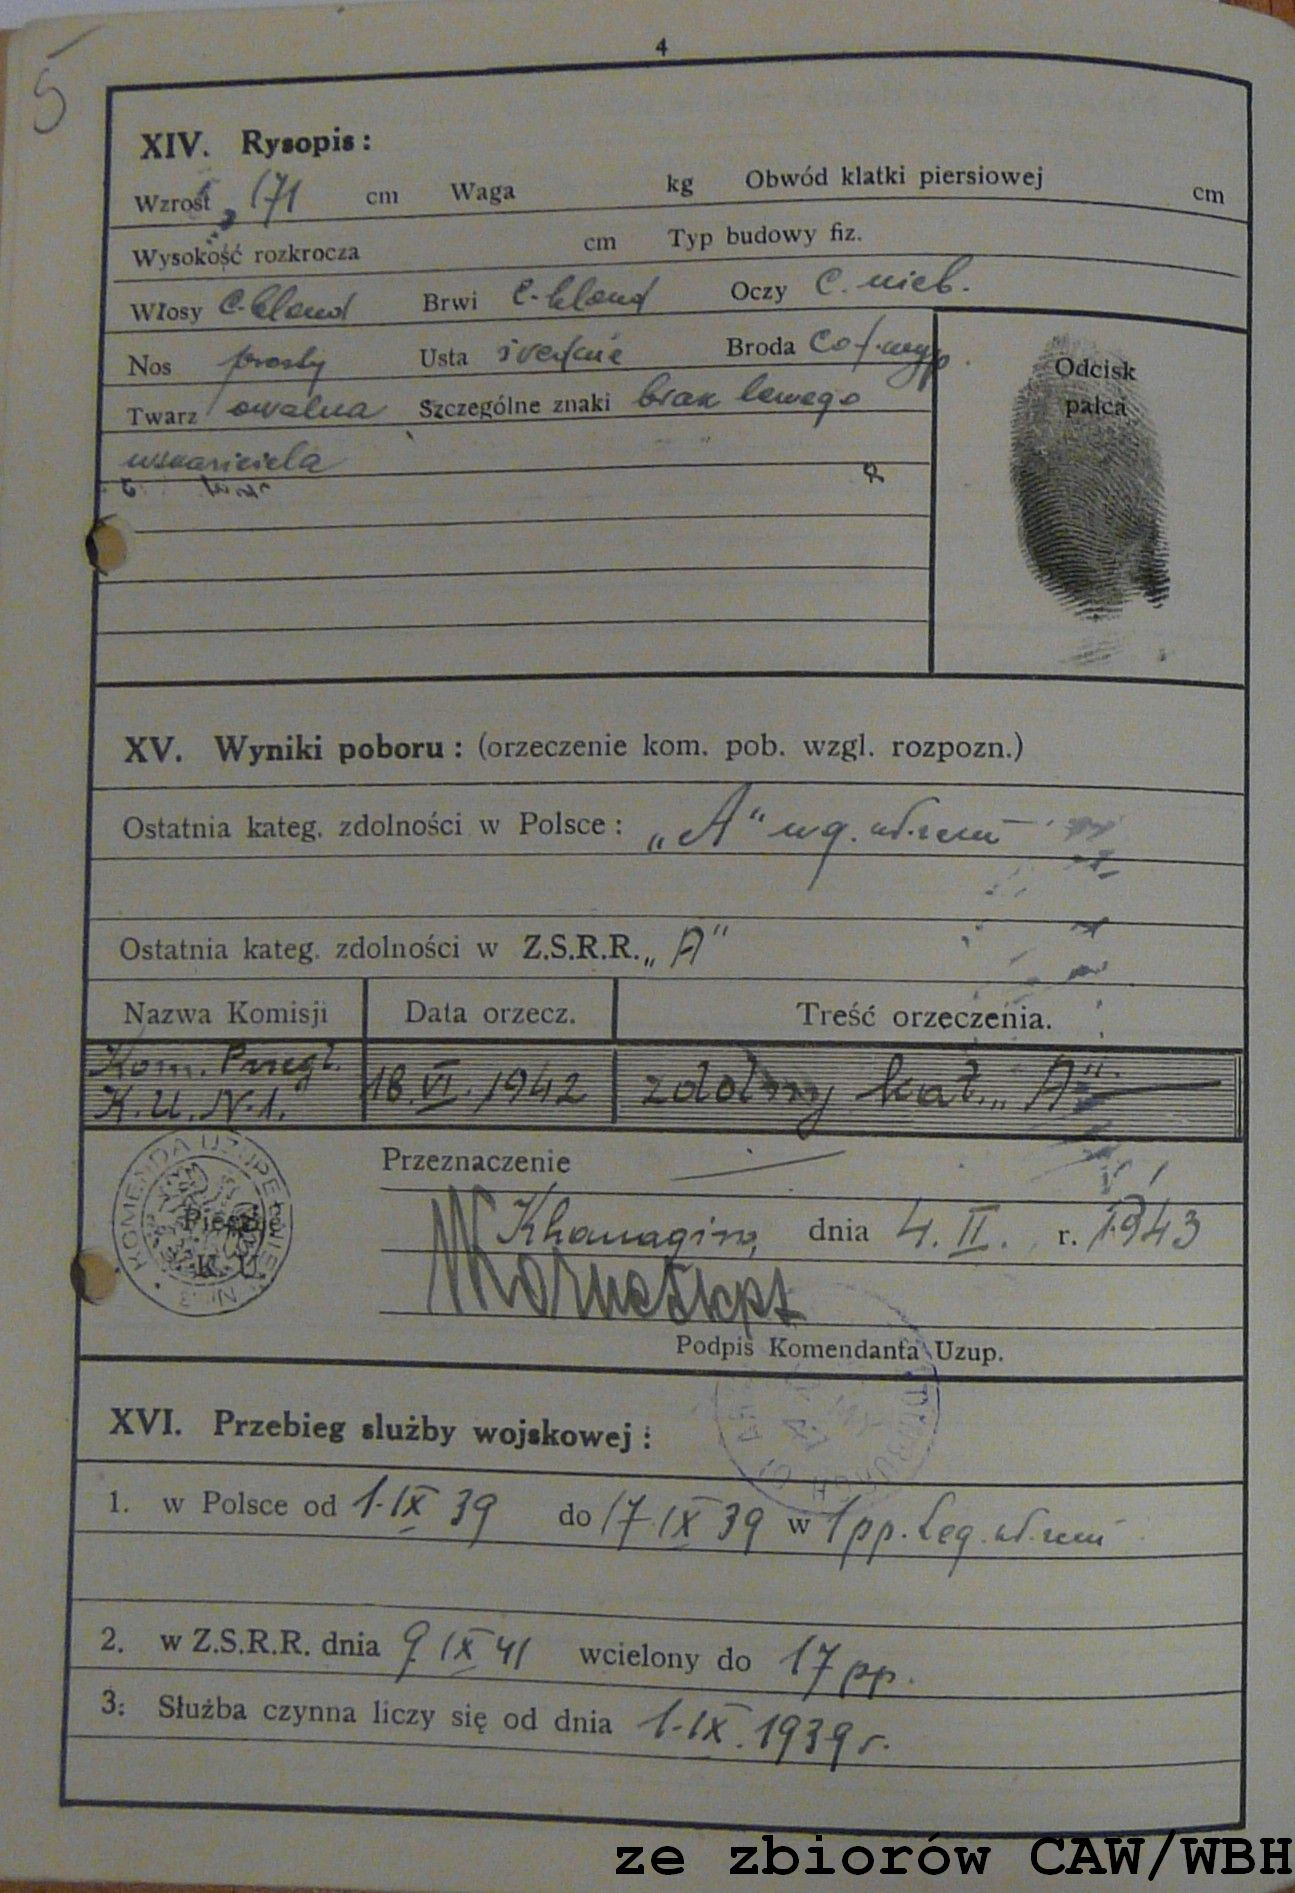 4
5
XIV. Rysopis:
Wzrost 171 cm Waga kg Obwód klatki piersiowej cm
Wysokość rozkrocza cm Typ budowy fiz.
Włosy c-blond Brwi c-blond Oczy c. nieb.
Nos prosty Usta średnie Broda
Twarz owalna Szczególne znaki brak lewego
wskaziciela
Odcisk
palca
XV. Wyniki poboru: (orzeczenie kom. pob. wzgl. rozpozn.)
Ostatnia kateg. zdolności w Polsce: „A" wg.
Ostatnia kateg. zdolności w Z.S.R.R. „A"
Nazwa Komisji Data orzecz. Treść orzeczenia.
Kom. Przegl.
K.U.N.1. 18.VI.1942 zdolny kat. „A".
Przeznaczenie
Pieczęć
K. U.
KOMENDA UZUPEŁNIEŃ
dnia 4. II. r. 1943
Podpis Komendanta Uzup.
XVI. Przebieg służby wojskowej:
1. w Polsce od 1.IX 39 do 17.IX 39 w 1 pp. Leg.
2. w Z.S.R.R. dnia 9 IX 41 wcielony do 17 pp.
3. Służba czynna liczy się od dnia 1.IX.1939 r.
ze zbiorów CAW/WBH